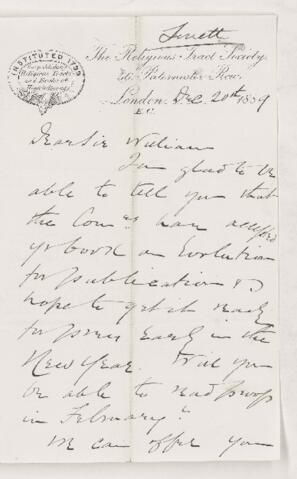 The Religious Tract Society
56, Paternoster Row,
London, Dec. 20th 1889
E.C.
INSTITUTED 1799
Dear Sir William
I am glad to be
able to tell you that
the Com^ee have accepted
yr book on Evolution
for publication & I
hope to get it ready
for press early in the
New Year. Will you
be able to read proofs
in February?
We can offer you